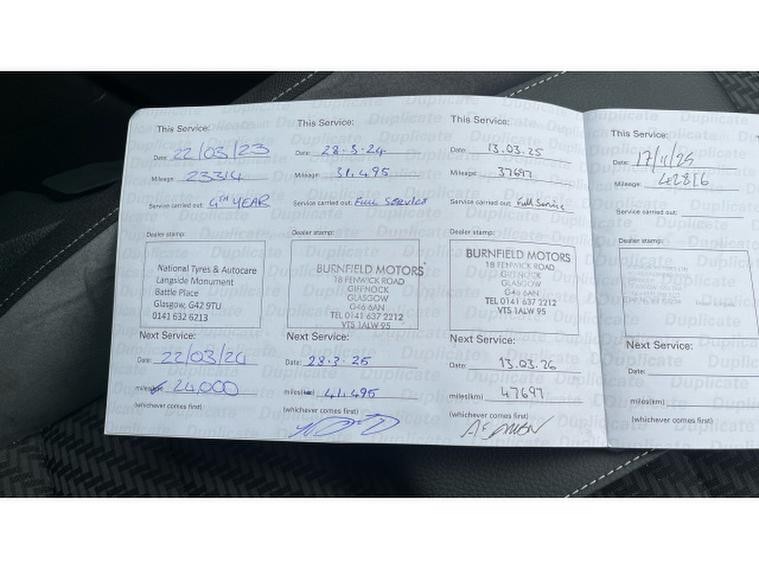 This Service:
Date: 22/03/23
Mileage: 23314
Service carried out: 4TH YEAR
Dealer stamp:
National Tyres & Autocare
Langside Monument
Battle Place
Glasgow, G42 9TU
0141 632 6213
Next Service:
Date: 22/03/24
miles(km) 24,000
(whichever comes first)
This Service:
Date: 28.3.24
Mileage: 31,495
Service carried out: FULL SERVICE
Dealer stamp:
BURNFIELD MOTORS
18 FENWICK ROAD
GIFFNOCK
GLASGOW
G46 6AN
TEL 0141 637 2212
VTS 1ALW 95
Next Service:
Date: 28.3.25
miles(km) 41,495
(whichever comes first)
This Service:
Date: 13.03.25
Mileage: 37697
Service carried out: Full Service
Dealer stamp:
BURNFIELD MOTORS
18 FENWICK ROAD
GIFFNOCK
GLASGOW
G46 6AN
TEL 0141 637 2212
VTS 1ALW 95
Next Service:
Date: 13.03.26
miles(km) 47697
(whichever comes first)
This Service:
Date: 17/11/25
Mileage: 42816
Service carried out:
Dealer stamp:
Next Service:
Date:
miles(km)
(whichever comes first)
Duplicate